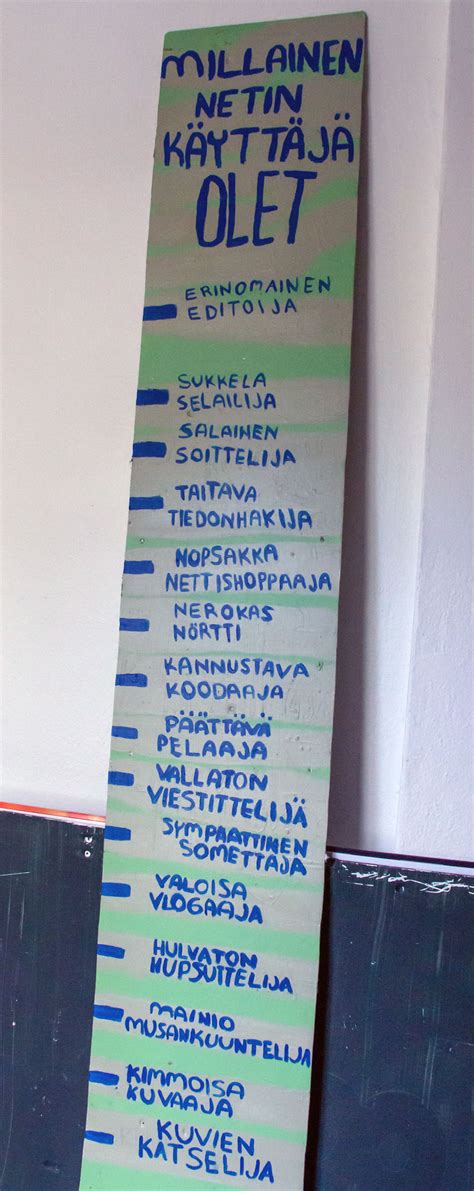 MILLAINEN
NETIN
KÄYTTÄJÄ
OLET
ERINOMAINEN
EDITOIJA
SUKKELA
SELAILIJA
SALAINEN
SOITTELIJA
TAITAVA
TIEDONHAKIJA
NOPSAKKA
NETTISHOPPAAJA
NEROKAS
NÖRTTI
KANNUSTAVA
KOODAAJA
PÄÄTTÄVÄ
PELAAJA
VALLATON
VIESTITTELIJÄ
SYMPAATTINEN
SOMETTAJA
VALOISA
VLOGAAJA
HULVATON
HUPSUTTELIJA
MAINIO
MUSANKUUNTELIJA
KIMMOISA
KUVAAJA
KUVIEN
KATSELIJA